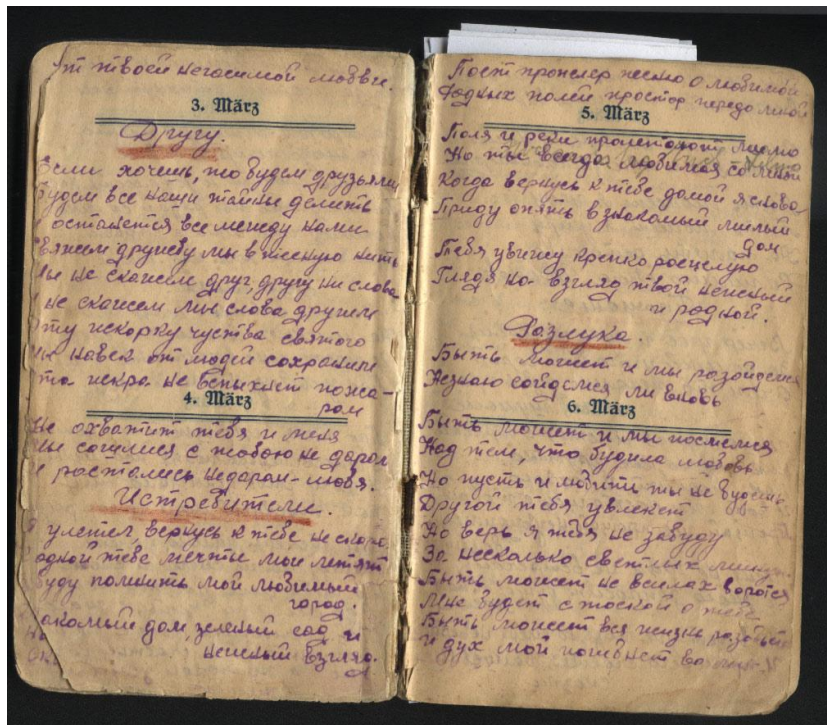 от твоей негасимой любви.
3. März
Другу.
Если хочешь, то будем друзьями
Будем все наши тайны делить
И останется все между нами
Свяжем дружбу мы в тесную нить
Мы не скажем друг, другу ни слова
И не скажем мы слова другим
Эту искорку чуства святого
Мы навек от людей сохраним
Эта искра не вспыхнет пожа-
ром
4. März
Не охватит тебя и меня
Мы сошлися с тобою не даром
И росстались недаром – любя.
Истребители.
Я улетел, вернусь к тебе не скоро,
одной тебе мечты мои летят
Буду помнить мой любимый
город.
Знакомый дом, зеленый сад и
нежный взгляд.
Поет пропелер песню о любимой
Родных полей простор передо мной
5. März
Поля и реки пролетают мимо
Но ты всегда любимая со мной
Когда вернусь к тебе домой я снова-
Приду опять в знакомый милый
дом
Тебя увижу крепко росцелую
Глядя на взгляд твой нежный
и родной.
Разлука.
Быть может и мы разойдемся
Незнаю сойдемся ли вновь
6. März
Быть может и мы посмеемся
Над тем, что будила любовь
Но пусть и любить ты не будешь
Другой тебя увлекет
Но верь я тебя не забуду
За несколько светлых минут
Быть может не всилах бороться
Мне будет с тоской о тебе
Быть может вся жизнь разобьется
И дух мой погибнет во